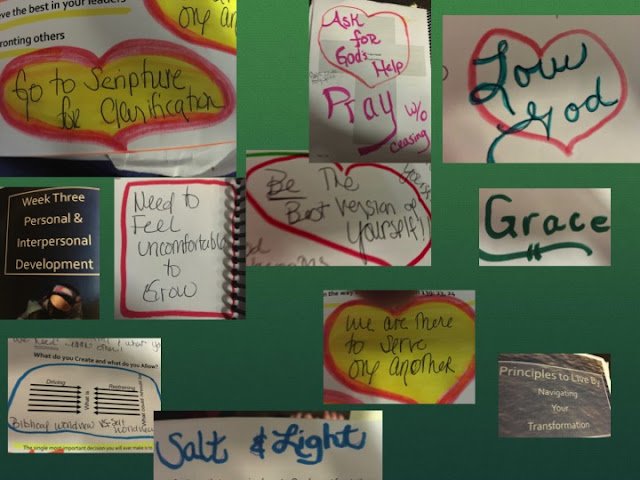 eve the best in your leaders
fronting others
Go to Scripture
for Clarification
ony another
Ask
for
God's
Help
Pray w/o
ceasing
Love
God
Week Three
Personal &
Interpersonal
Development
Need to
Feel
uncomfortable
to
Grow
Be The
Best version of
Yourself!
Grace
in the way
We are here
to serve
ony another
What do you Create and what do you Allow?
Driving
Restraining
What is
Biblical worldview vs. self
worldview
The single most important decision you will ever make is to
Principles to Live By
Navigating
Your
Transformation
Salt & Light